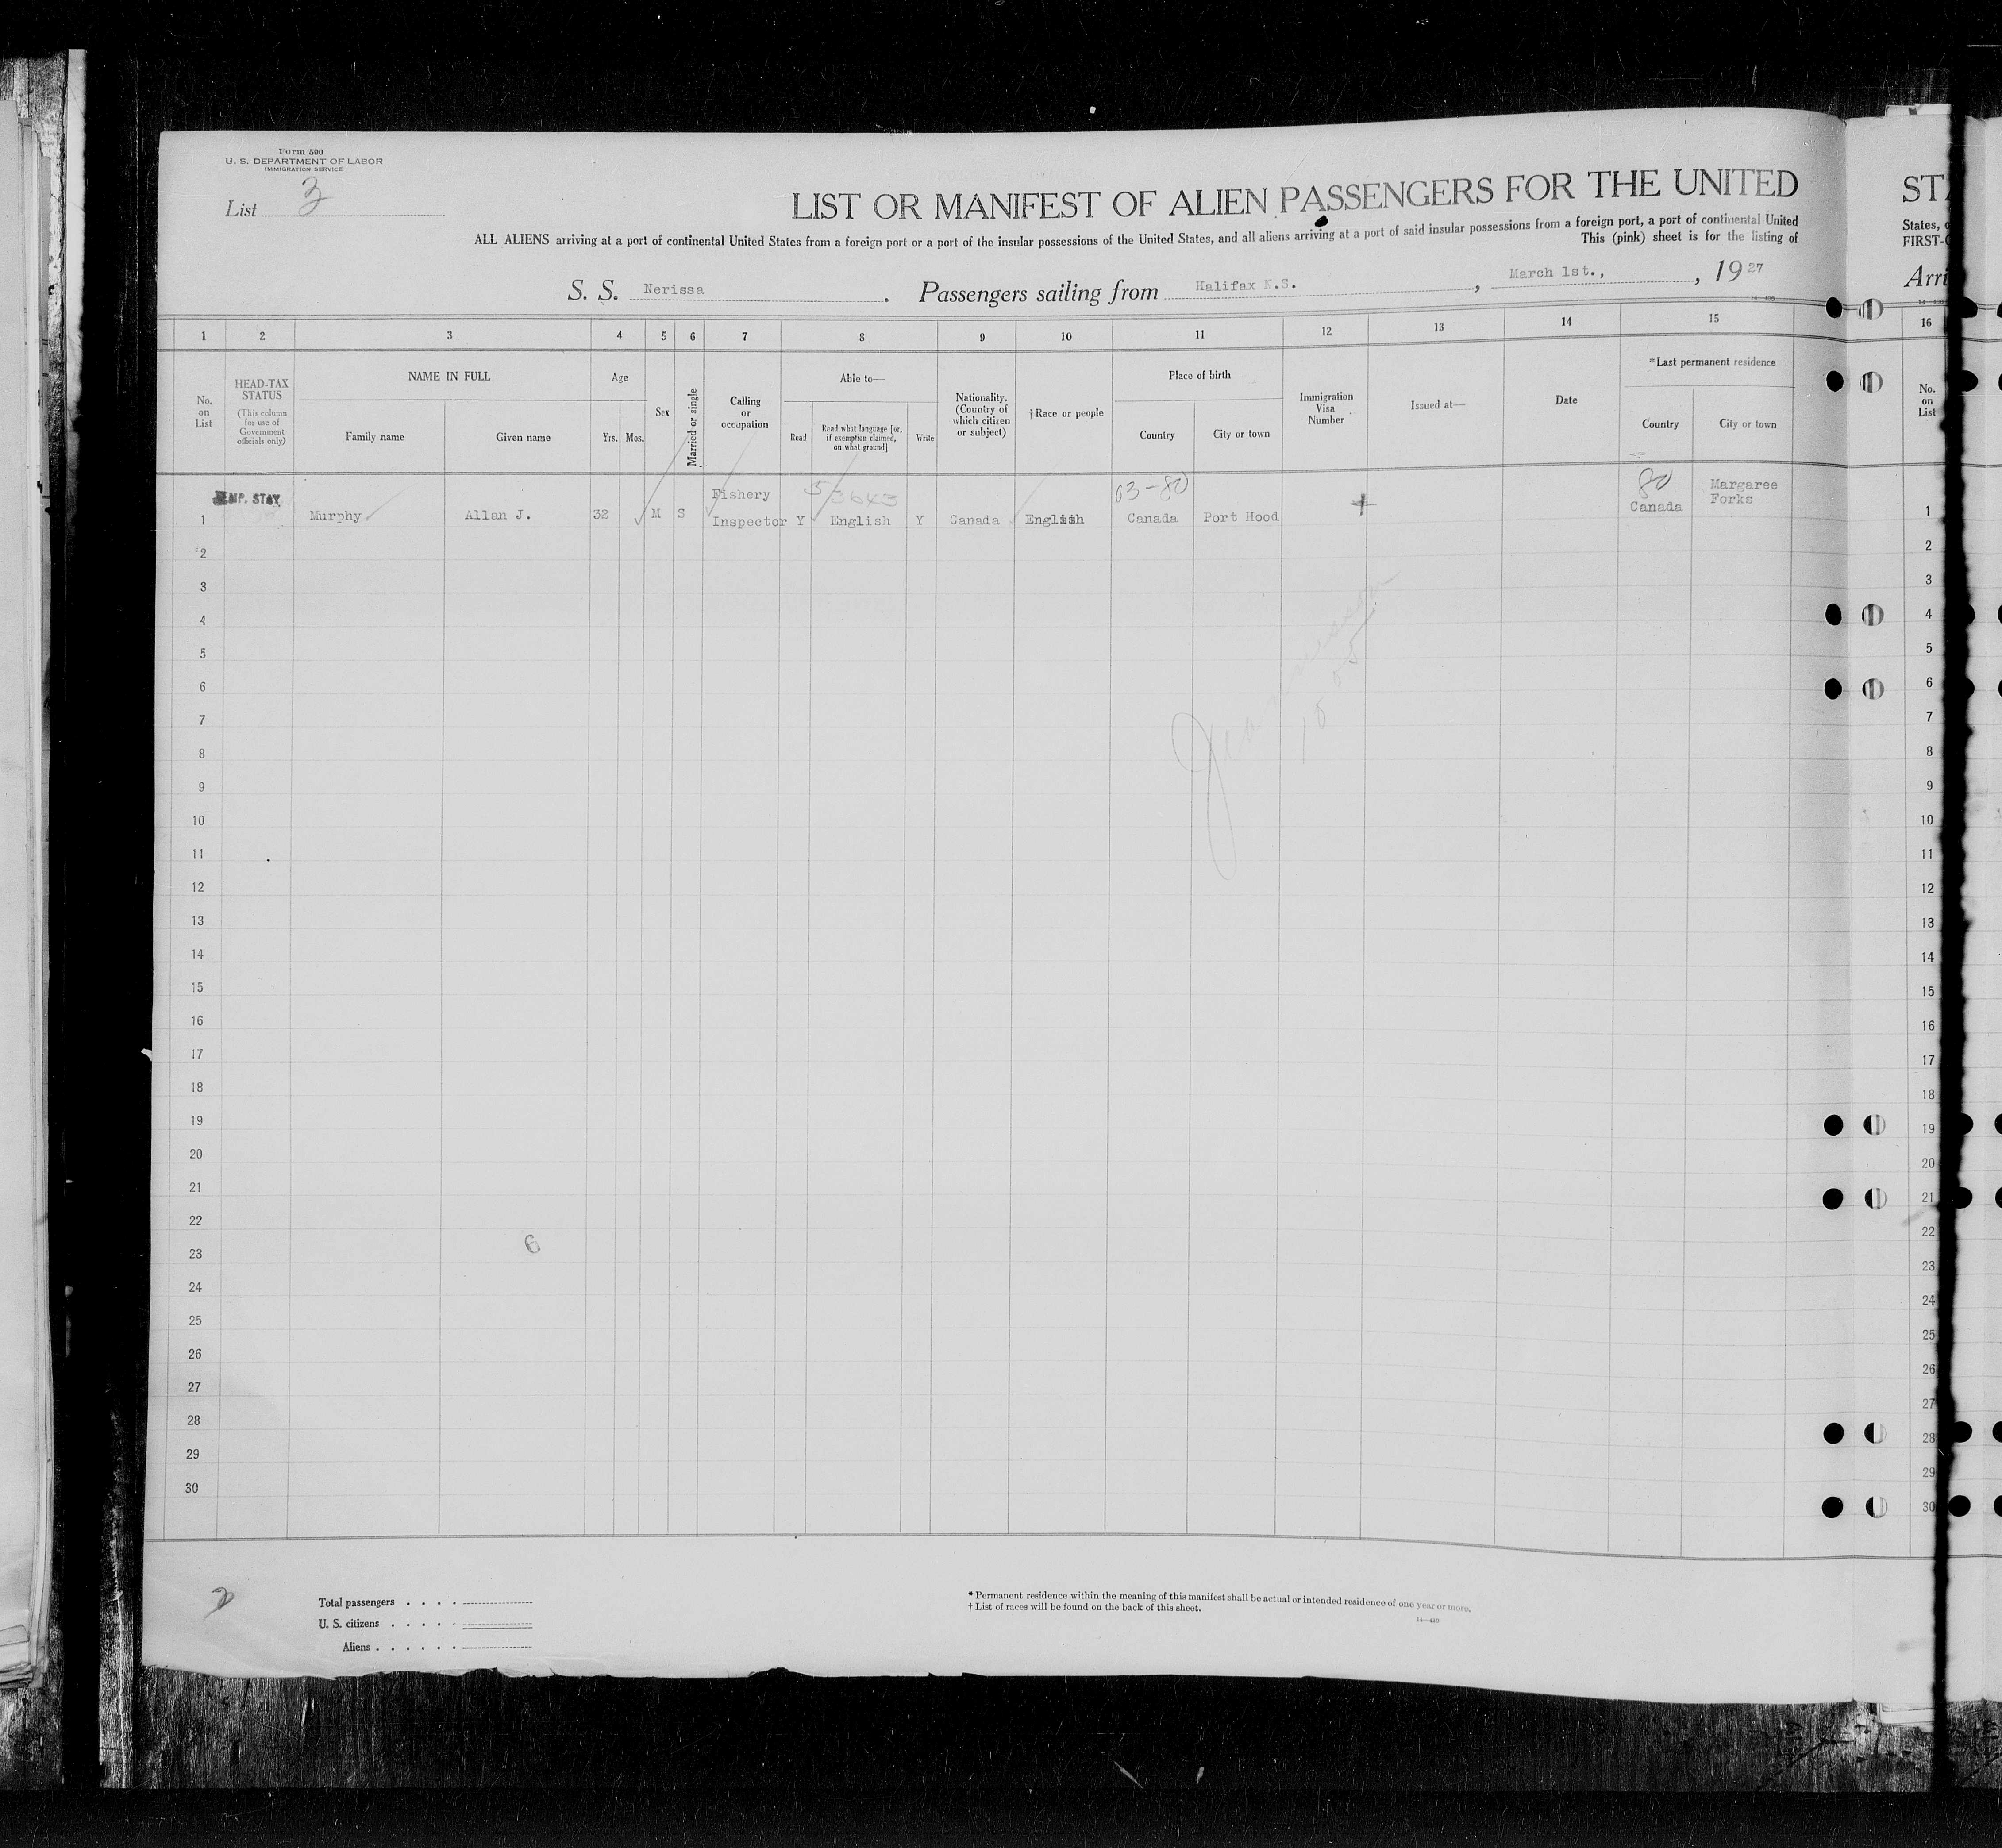 Form 500
U. S. DEPARTMENT OF LABOR
IMMIGRATION SERVICE
List 3
LIST OR MANIFEST OF ALIEN PASSENGERS FOR THE UNITED
ALL ALIENS arriving at a port of continental United States from a foreign port or a port of the insular possessions of the United States, and all aliens arriving at a port of said insular possessions from a foreign port, a port of continental United
This (pink) sheet is for the listing of
S. S. Nerissa . Passengers sailing from Halifax N.S. , March 1st., , 1927
1 2 3 4 5 6 7 8 9 10 11 12 13 14 15
No. on List
HEAD-TAX STATUS
(This column for use of Government officials only)
NAME IN FULL
Family name Given name
Age
Yrs. Mos.
Sex
Married or single
Calling or occupation
Able to—
Read
Read what language [or, if exemption claimed, on what ground]
Write
Nationality. (Country of which citizen or subject)
† Race or people
Place of birth
Country City or town
Immigration Visa Number
Issued at—
Date
* Last permanent residence
Country City or town
Fishery 53643 03-80 80 Margaree
Forks
1 Murphy Allan J. 32 M S Inspector Y English Y Canada English Canada Port Hood Canada
2
3
4
5
6
7
8
9
10
11
12
13
14
15
16
17
18
19
20
21
22
23
6
24
25
26
27
28
29
30
2
Total passengers
U. S. citizens
Aliens
* Permanent residence within the meaning of this manifest shall be actual or intended residence of one year or more.
† List of races will be found on the back of this sheet.
14—480
States,
FIRST-
16
No. on List
1
2
3
4
5
6
7
8
9
10
11
12
13
14
15
16
17
18
19
20
21
22
23
24
25
26
27
28
29
30